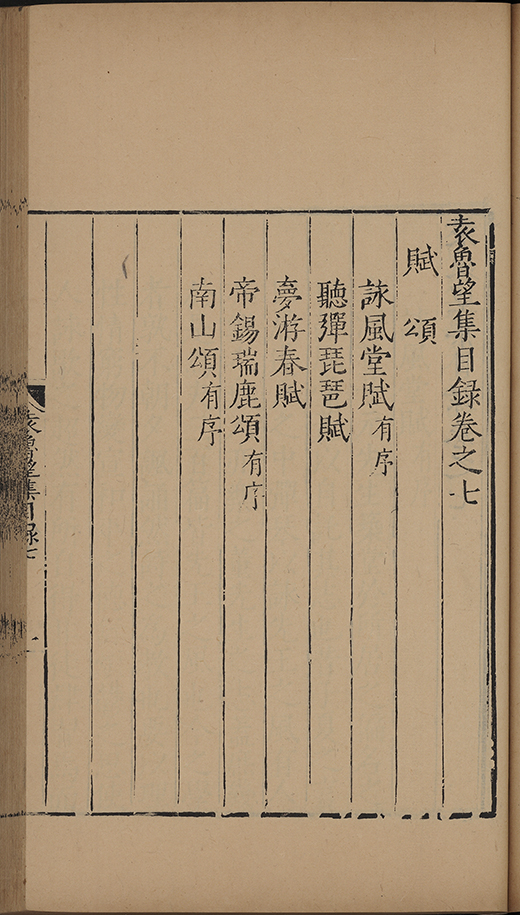 袁魯望集目錄卷之七
賦 頌
詠風堂賦有序
聽彈琵琶賦
夢游春賦
帝錫瑞鹿頌有序
南山頌有序
袁魯望集目錄七
一